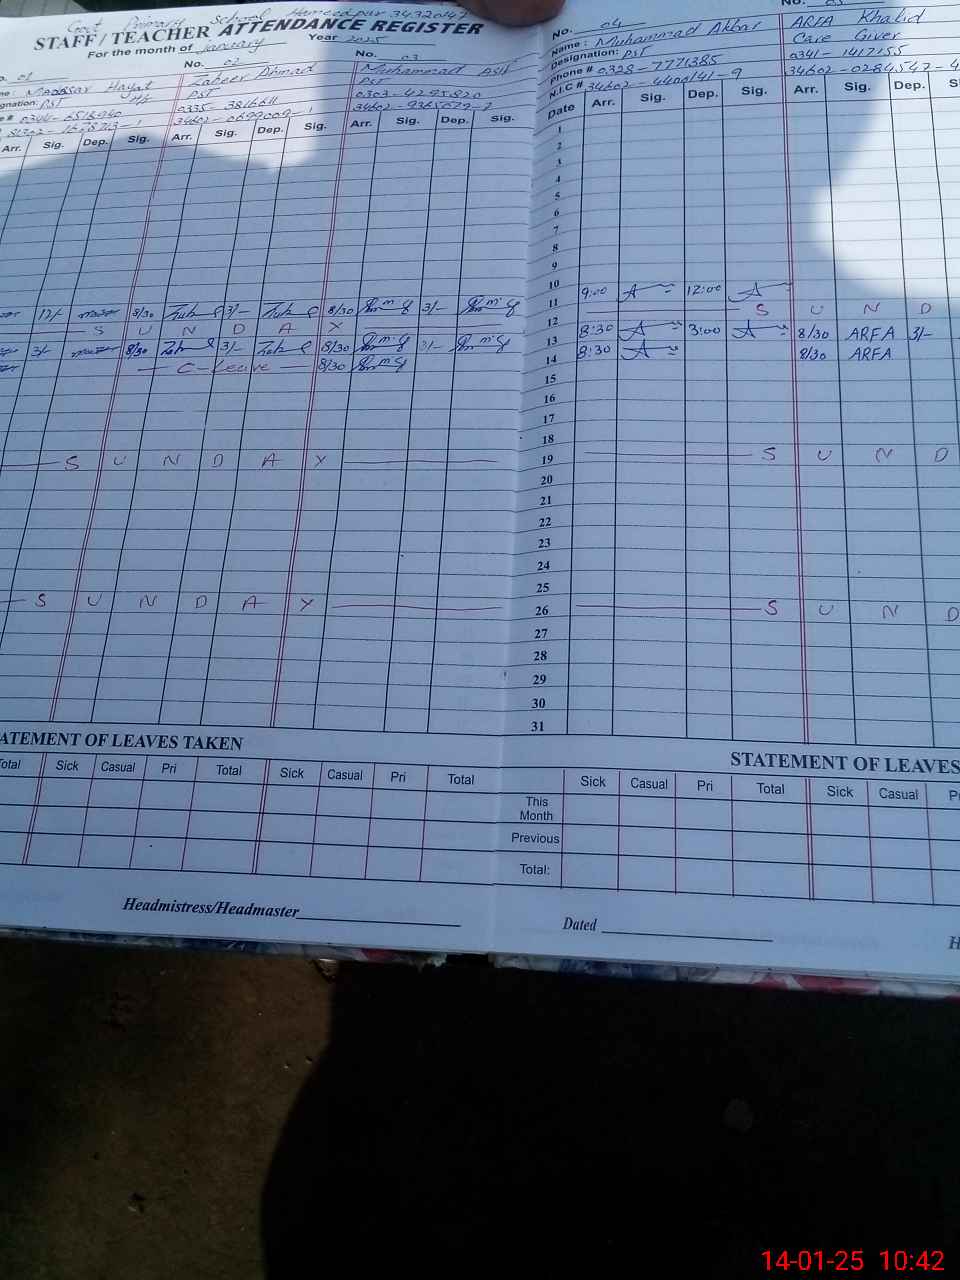 Govt Primary School Hameedpur 34320147
STAFF / TEACHER ATTENDANCE REGISTER
For the month of January Year 2025
No. 01 No. 02 No. 03
Hayat Zaheer Ahmad Muhammad Asif
PST PST PST
0335-3816611 0303-4295820
Arr. Sig. Dep. Sig. Arr. Sig. Dep. Sig. Arr. Sig. Dep. Sig.
12/- 8/30 3/- 8/30 3/-
S U N D A Y
3/- 8/30 3/- 8/30 3/-
C-Leave 8/30
S U N D A Y
S U N D A Y
STATEMENT OF LEAVES TAKEN
Total Sick Casual Pri Total Sick Casual Pri Total
Headmistress/Headmaster
No. 04 No. 05
Name: Muhammad Akbar ARFA Khalid
Designation: PST Care Giver
Phone # 0328-7771385 0341-1417155
N.I.C # 34602-4400141-9 34602-0284547-4
Date Arr. Sig. Dep. Sig. Arr. Sig. Dep.
1
2
3
4
5
6
7
8
9
10
11 9:00 12:00
12 S U N D
13 8:30 3:00 8/30 ARFA 3/-
14 8:30 8/30 ARFA
15
16
17
18
19 S U N D
20
21
22
23
24
25
26 S U N D
27
28
29
30
31
STATEMENT OF LEAVES
Sick Casual Pri Total Sick Casual
This Month
Previous
Total:
Dated
14-01-25 10:42